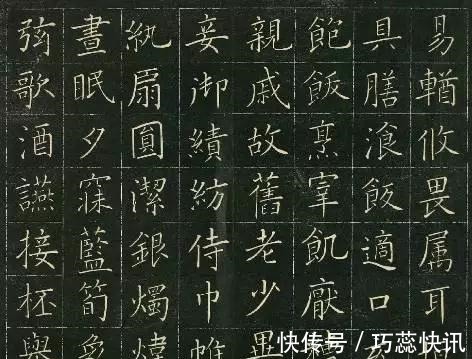 易輶攸畏属耳
具膳湌飯適口
飽飫烹宰飢厭
親戚故舊老少異
妾御績紡侍巾帷
紈扇圓潔銀燭煒
晝眠夕寐藍筍象
弦歌酒讌接杯舉
快传号 / 巧蕊快讯